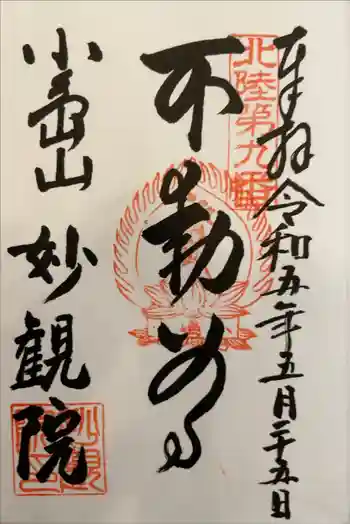 奉拝令和五年五月二十五日
北陸第九番
不動尊
小嶋山
妙観院